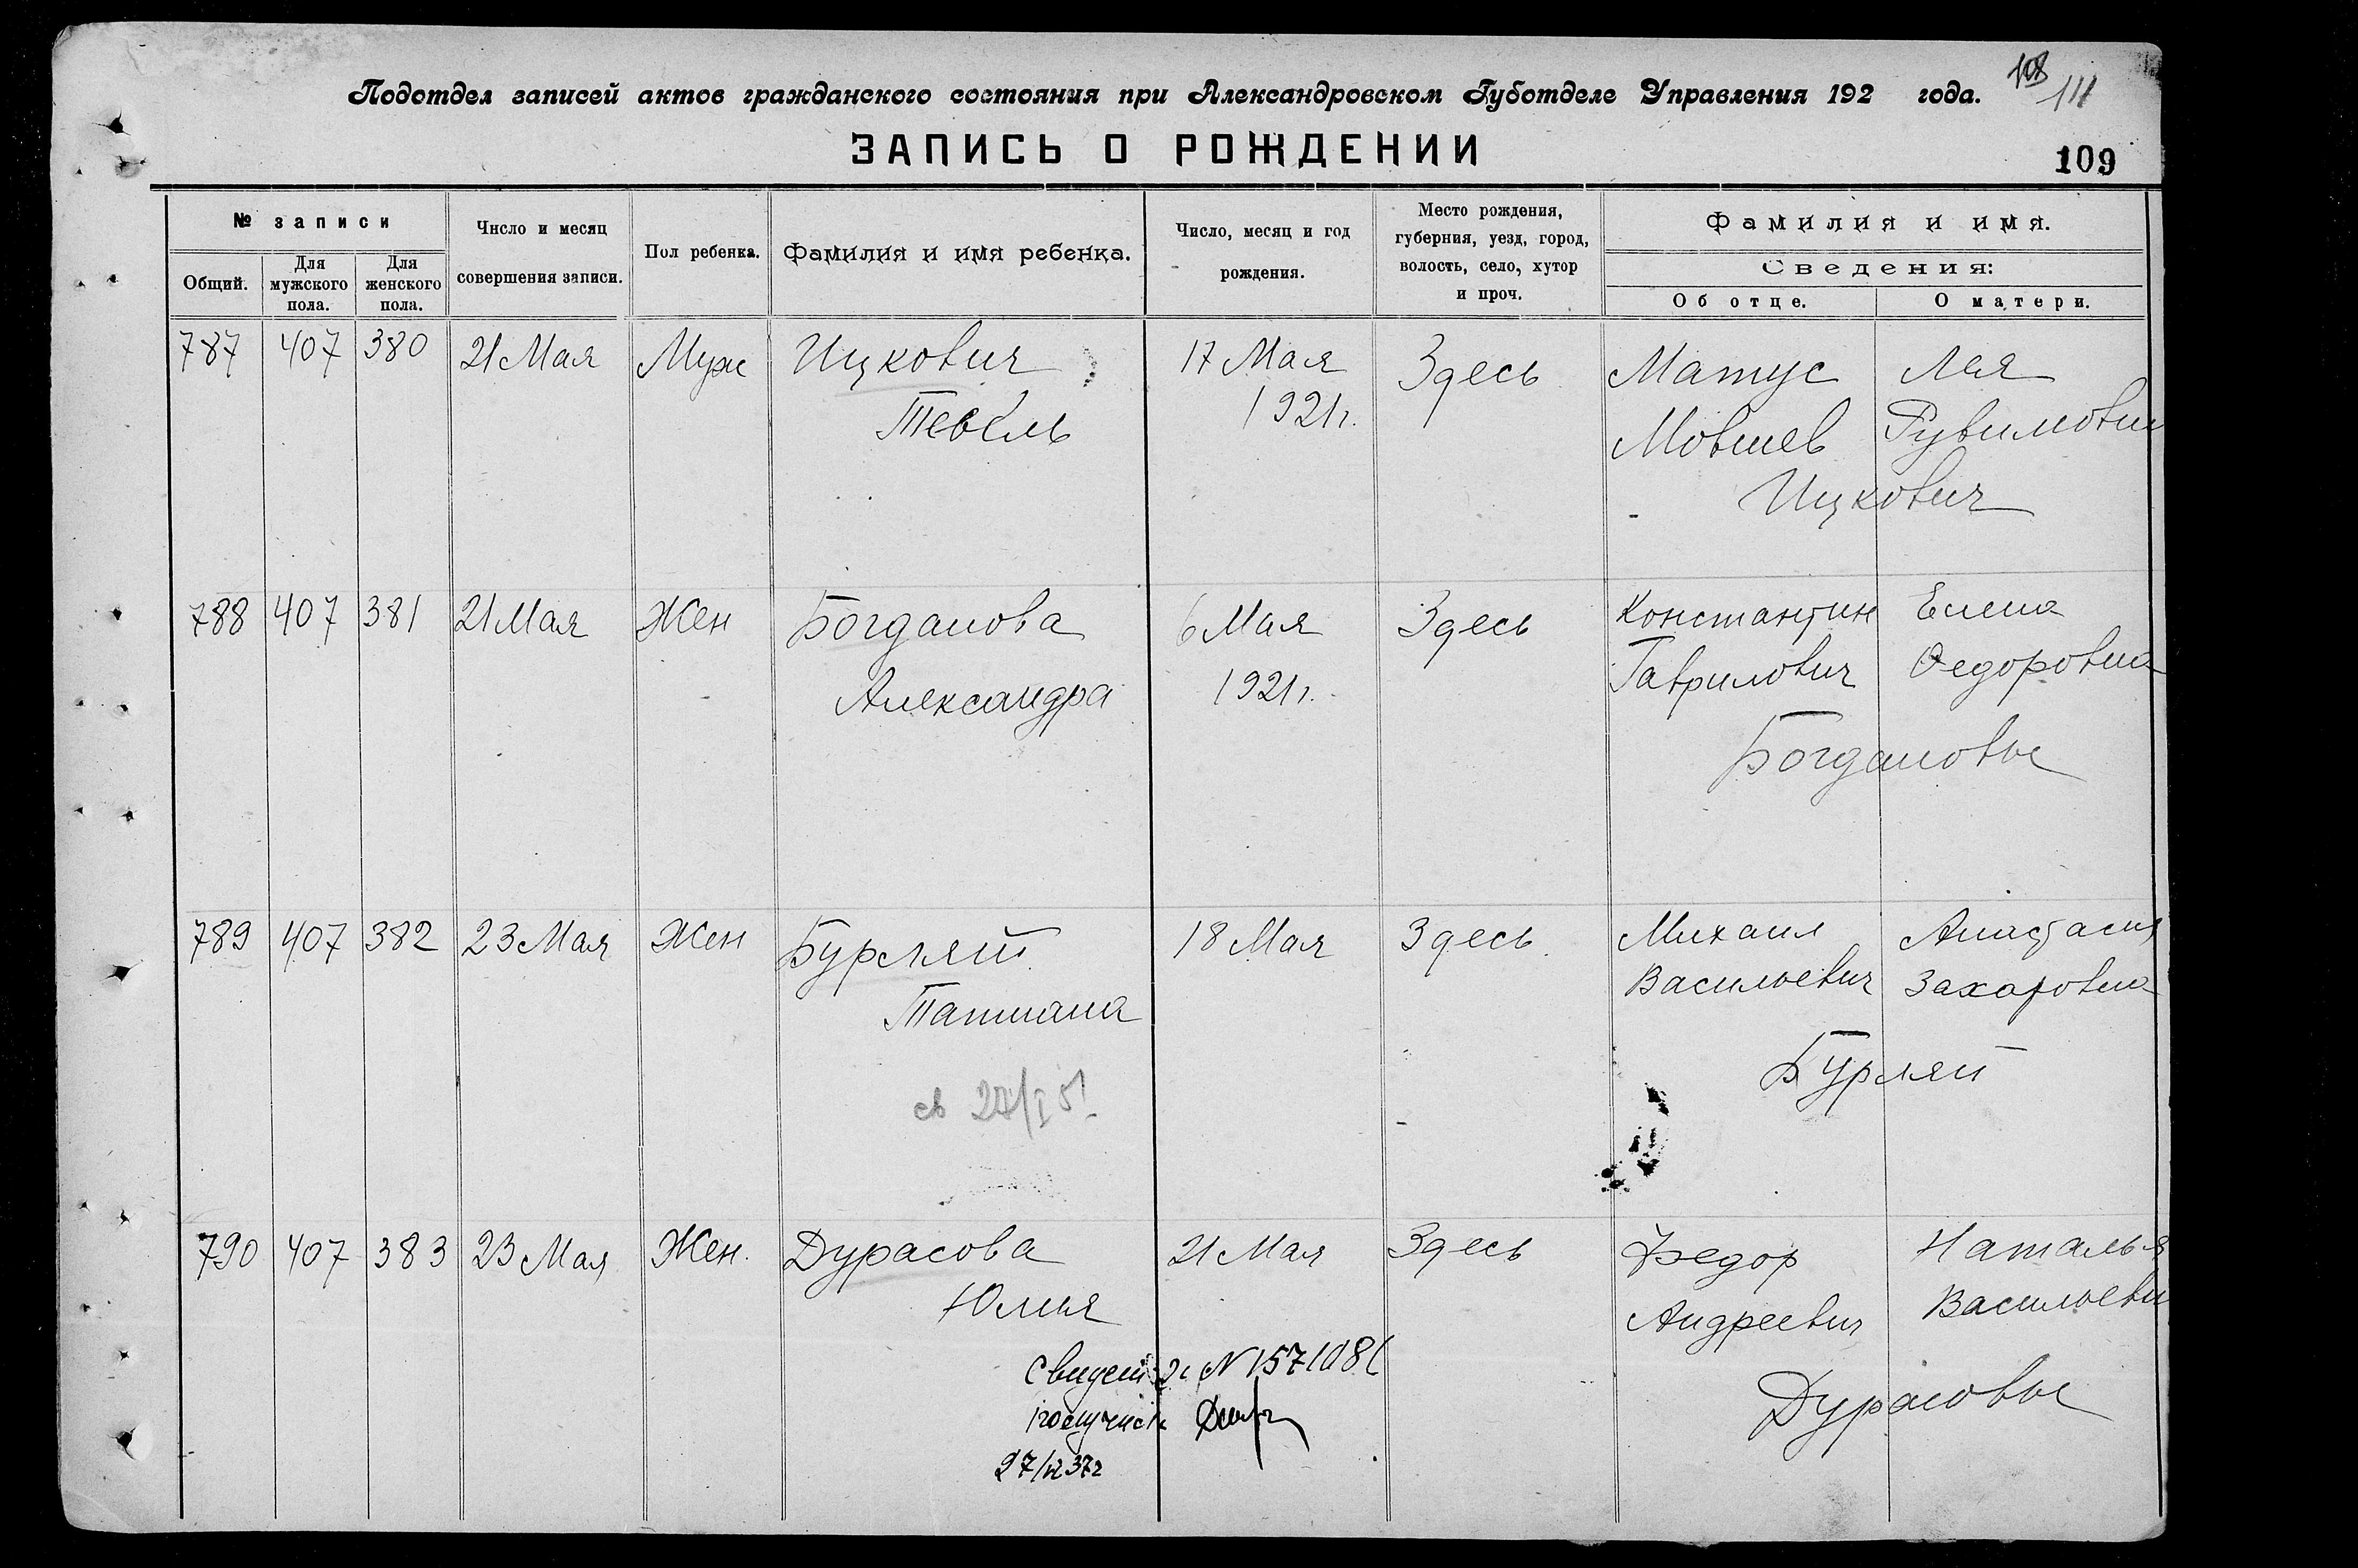 108
111
Подотдел записей актов гражданского состояния при Александровском Губотделе Управления 192 года.
ЗАПИСЬ О РОЖДЕНИИ
109
№ записи
Общий.
Для мужского пола.
Для женского пола.
Число и месяц совершения записи.
Пол ребенка.
Фамилия и имя ребенка.
Число, месяц и год рождения.
Место рождения, губерния, уезд, город, волость, село, хутор и проч.
Фамилия и имя.
Сведения:
Об отце.
О матери.
787 407 380 21 Мая Муж Ицкович 17 Мая Здесь Матус Лея
Тевель 1921 г. Мовшев Рувимовн
Ицкович
788 407 381 21 Мая Жен Богданова 6 Мая Здесь Константин Елена
Александра 1921 г. Гаврилович Федоровна
Богдановы
789 407 382 23 Мая Жен Бурляй 18 Мая Здесь Михаил Анастасия
Татиана Васильевич Захаровна
Бурляй
св 27/I 51
790 407 383 23 Мая Жен. Дурасова 21 Мая Здесь Федор Наталья
Юлия Андреевич Васильевн
Дурасовы
Свидет № 157108
получила
27/ 37г